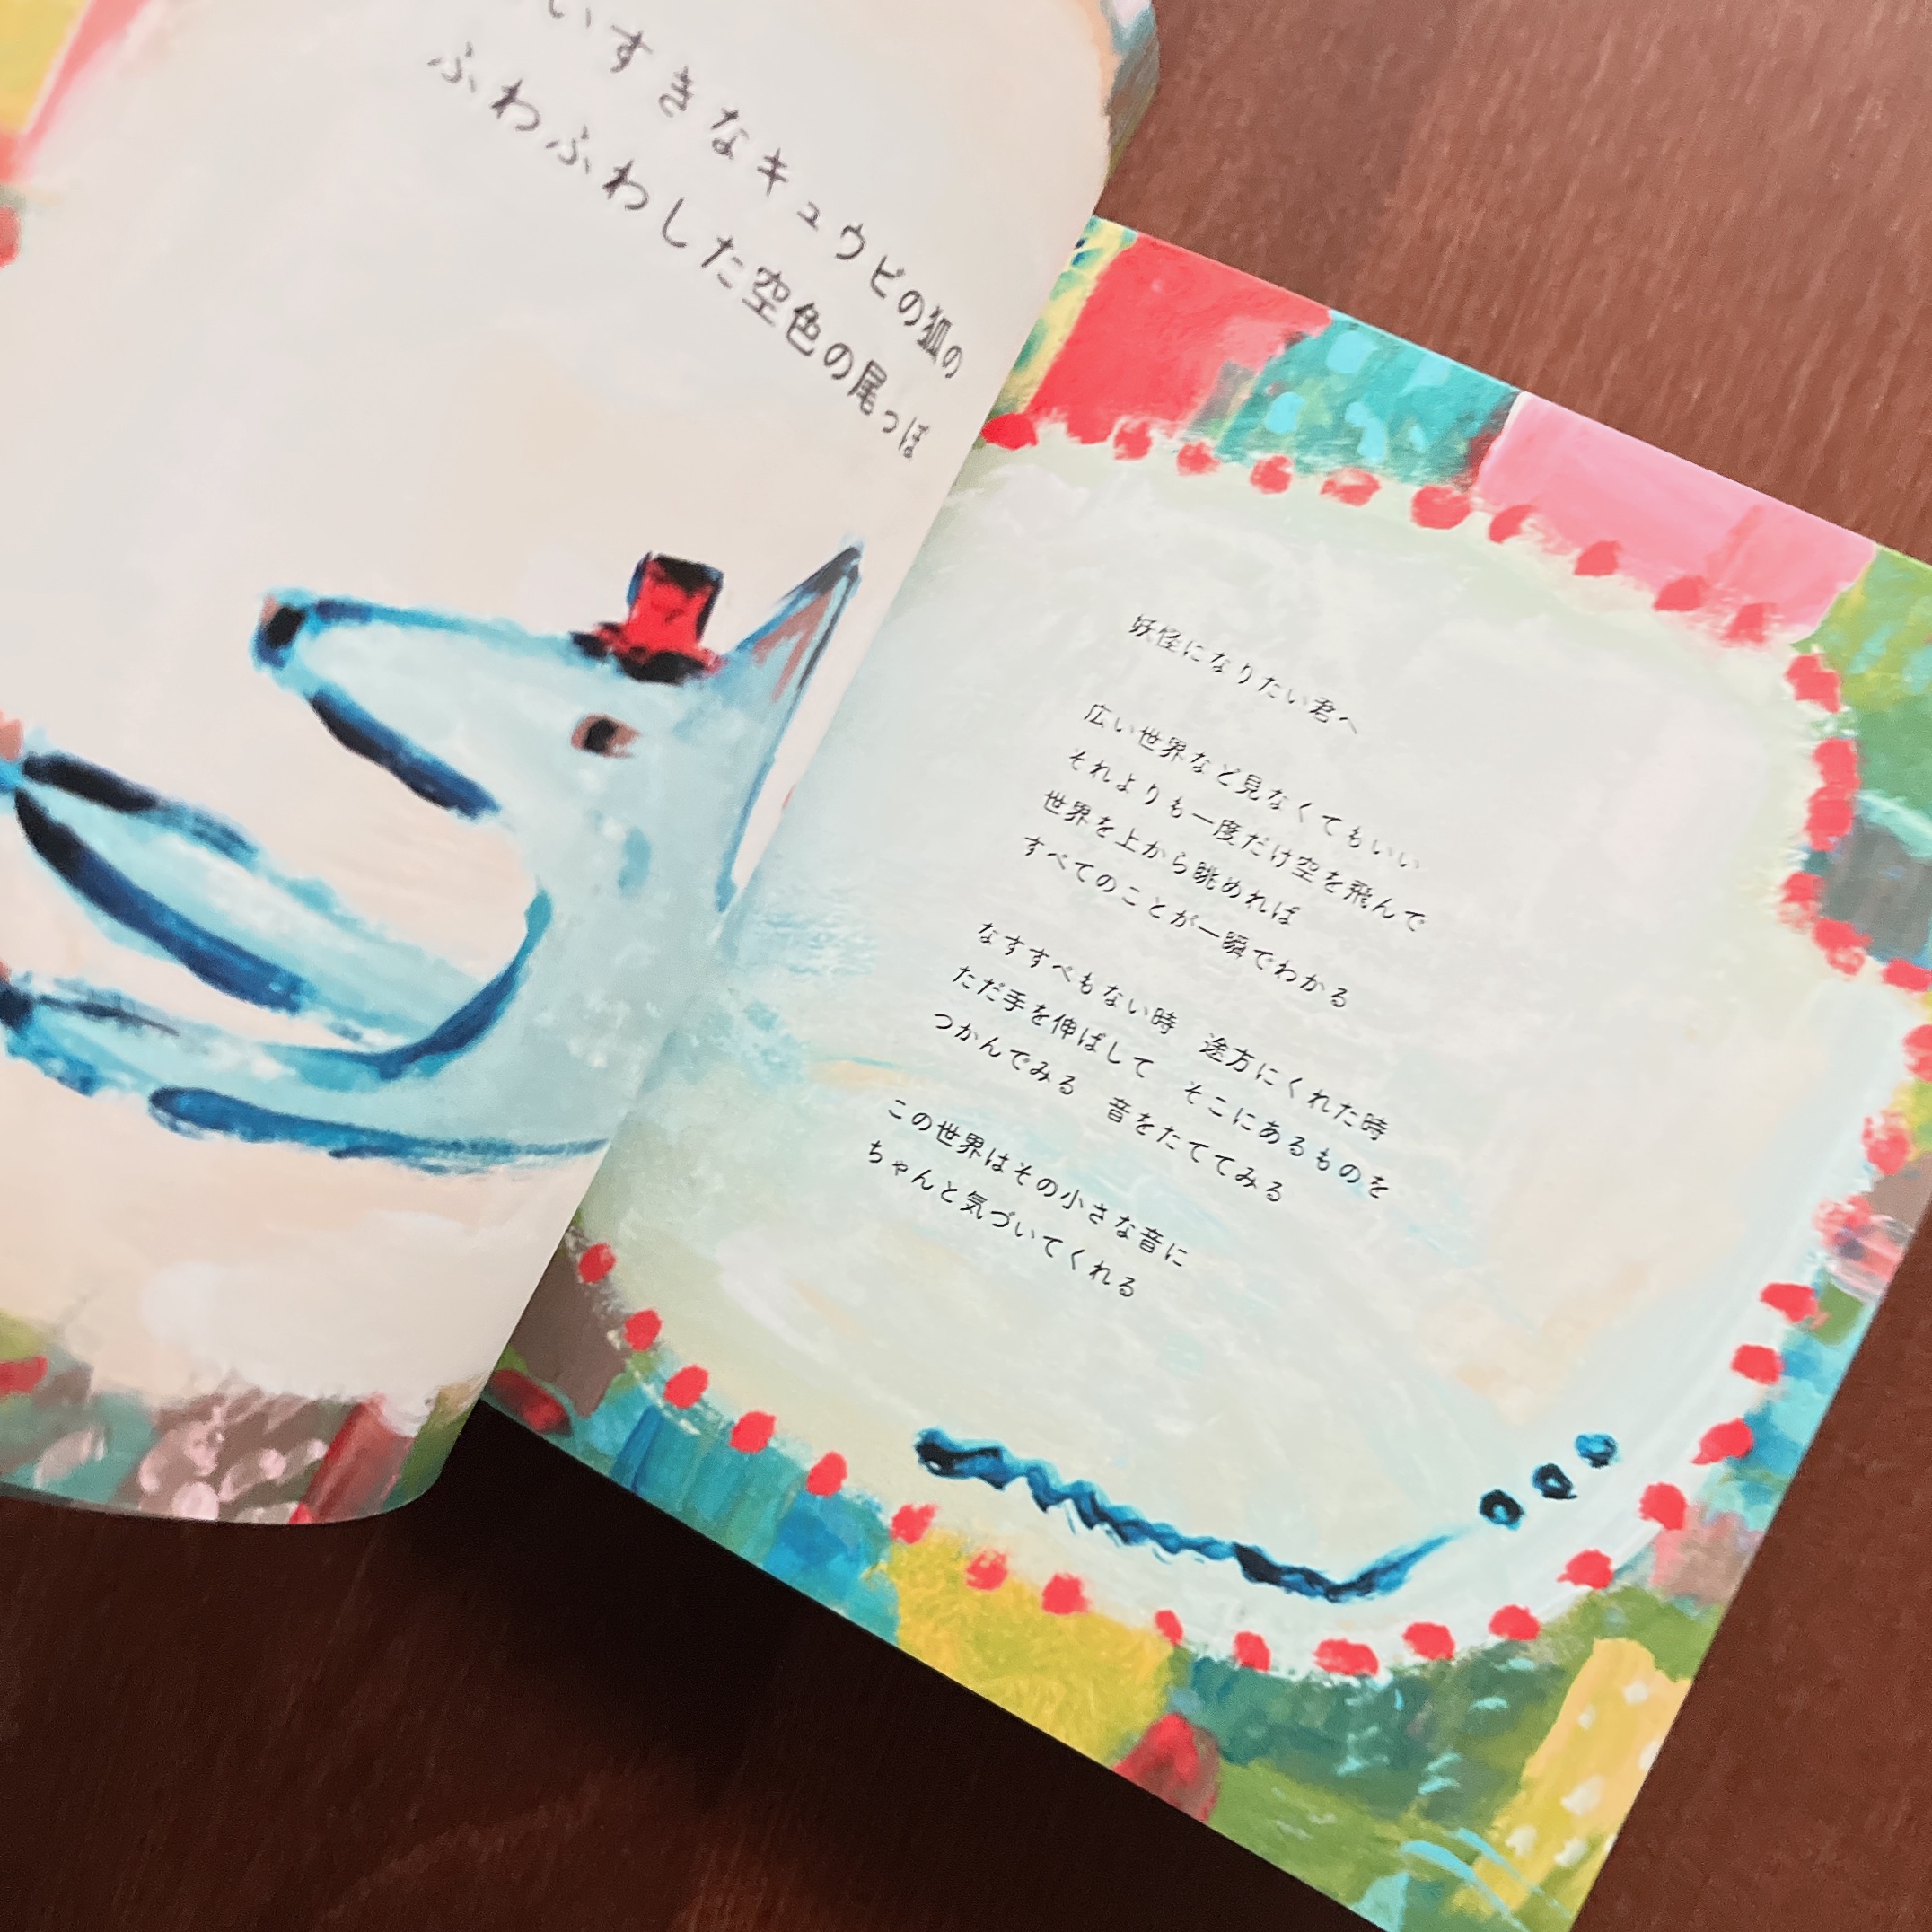 いすきなキュウビの狐の
ふわふわした空色の尾っぽ
妖怪になりたい君へ
広い世界など見なくてもいい
それよりも一度だけ空を飛んで
世界を上から眺めれば
すべてのことが一瞬でわかる
なすすべもない時　途方にくれた時
ただ手を伸ばして　そこにあるものを
つかんでみる　音をたててみる
この世界はその小さな音に
ちゃんと気づいてくれる